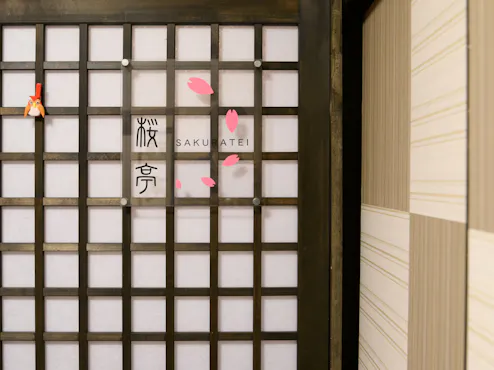 桜亭
SAKURATEI